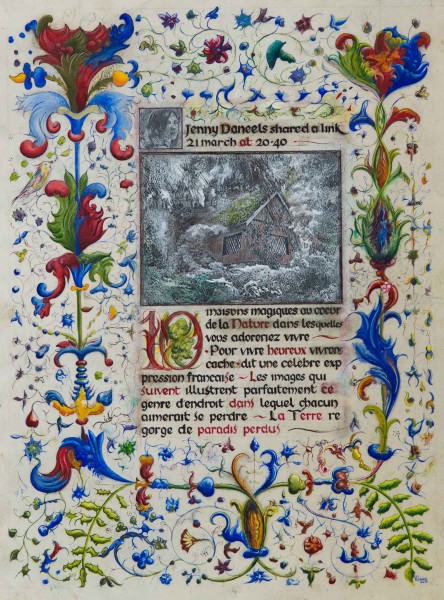 Jenny Daneels shared a link
21 march at 20·40
10 maisons magiques au coeur
de la Nature dans lesquelles
vous adorerez vivre ~
·Pour vivre heureux vivons
cache·dit une celebre exp
pression francaise ~ Les images qui
suivent illustrent parfaitement ce
genre d'endroit dans lequel chacun
aimerait se perdre ~ La Terre re
gorge de paradis perdus